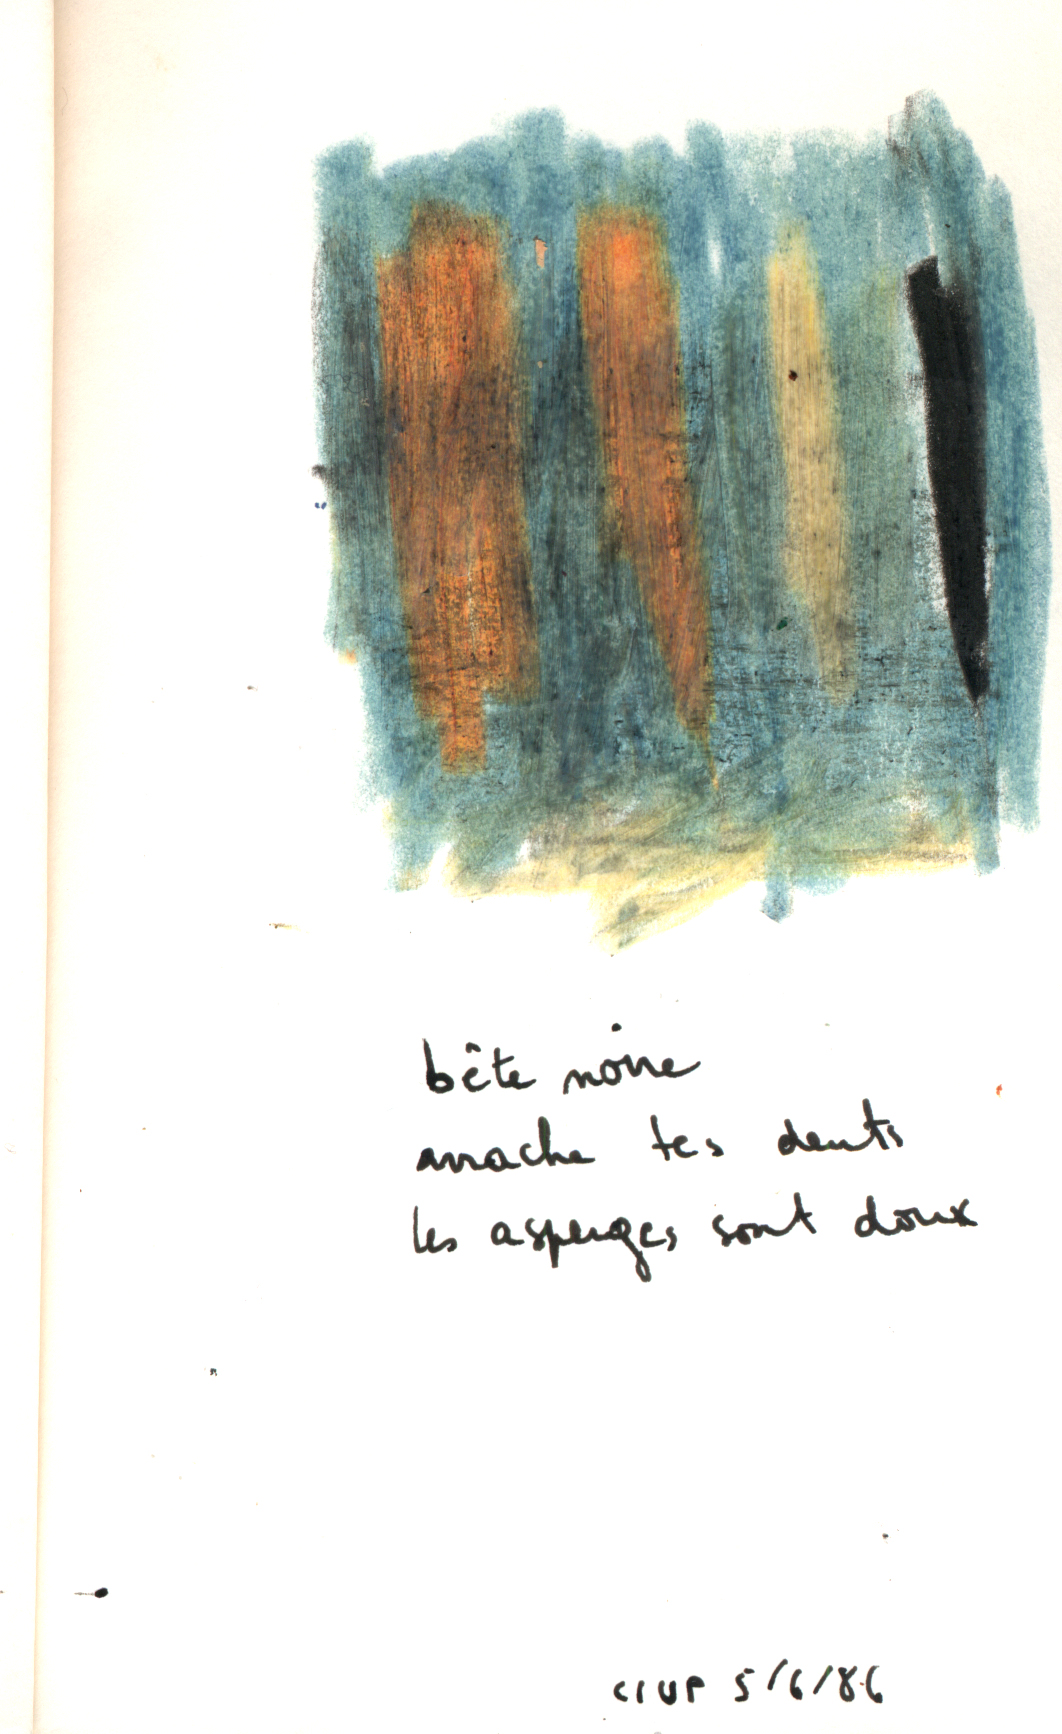 bête noire
arrache tes dents
les asperges sont doux
CIUP 5/6/86